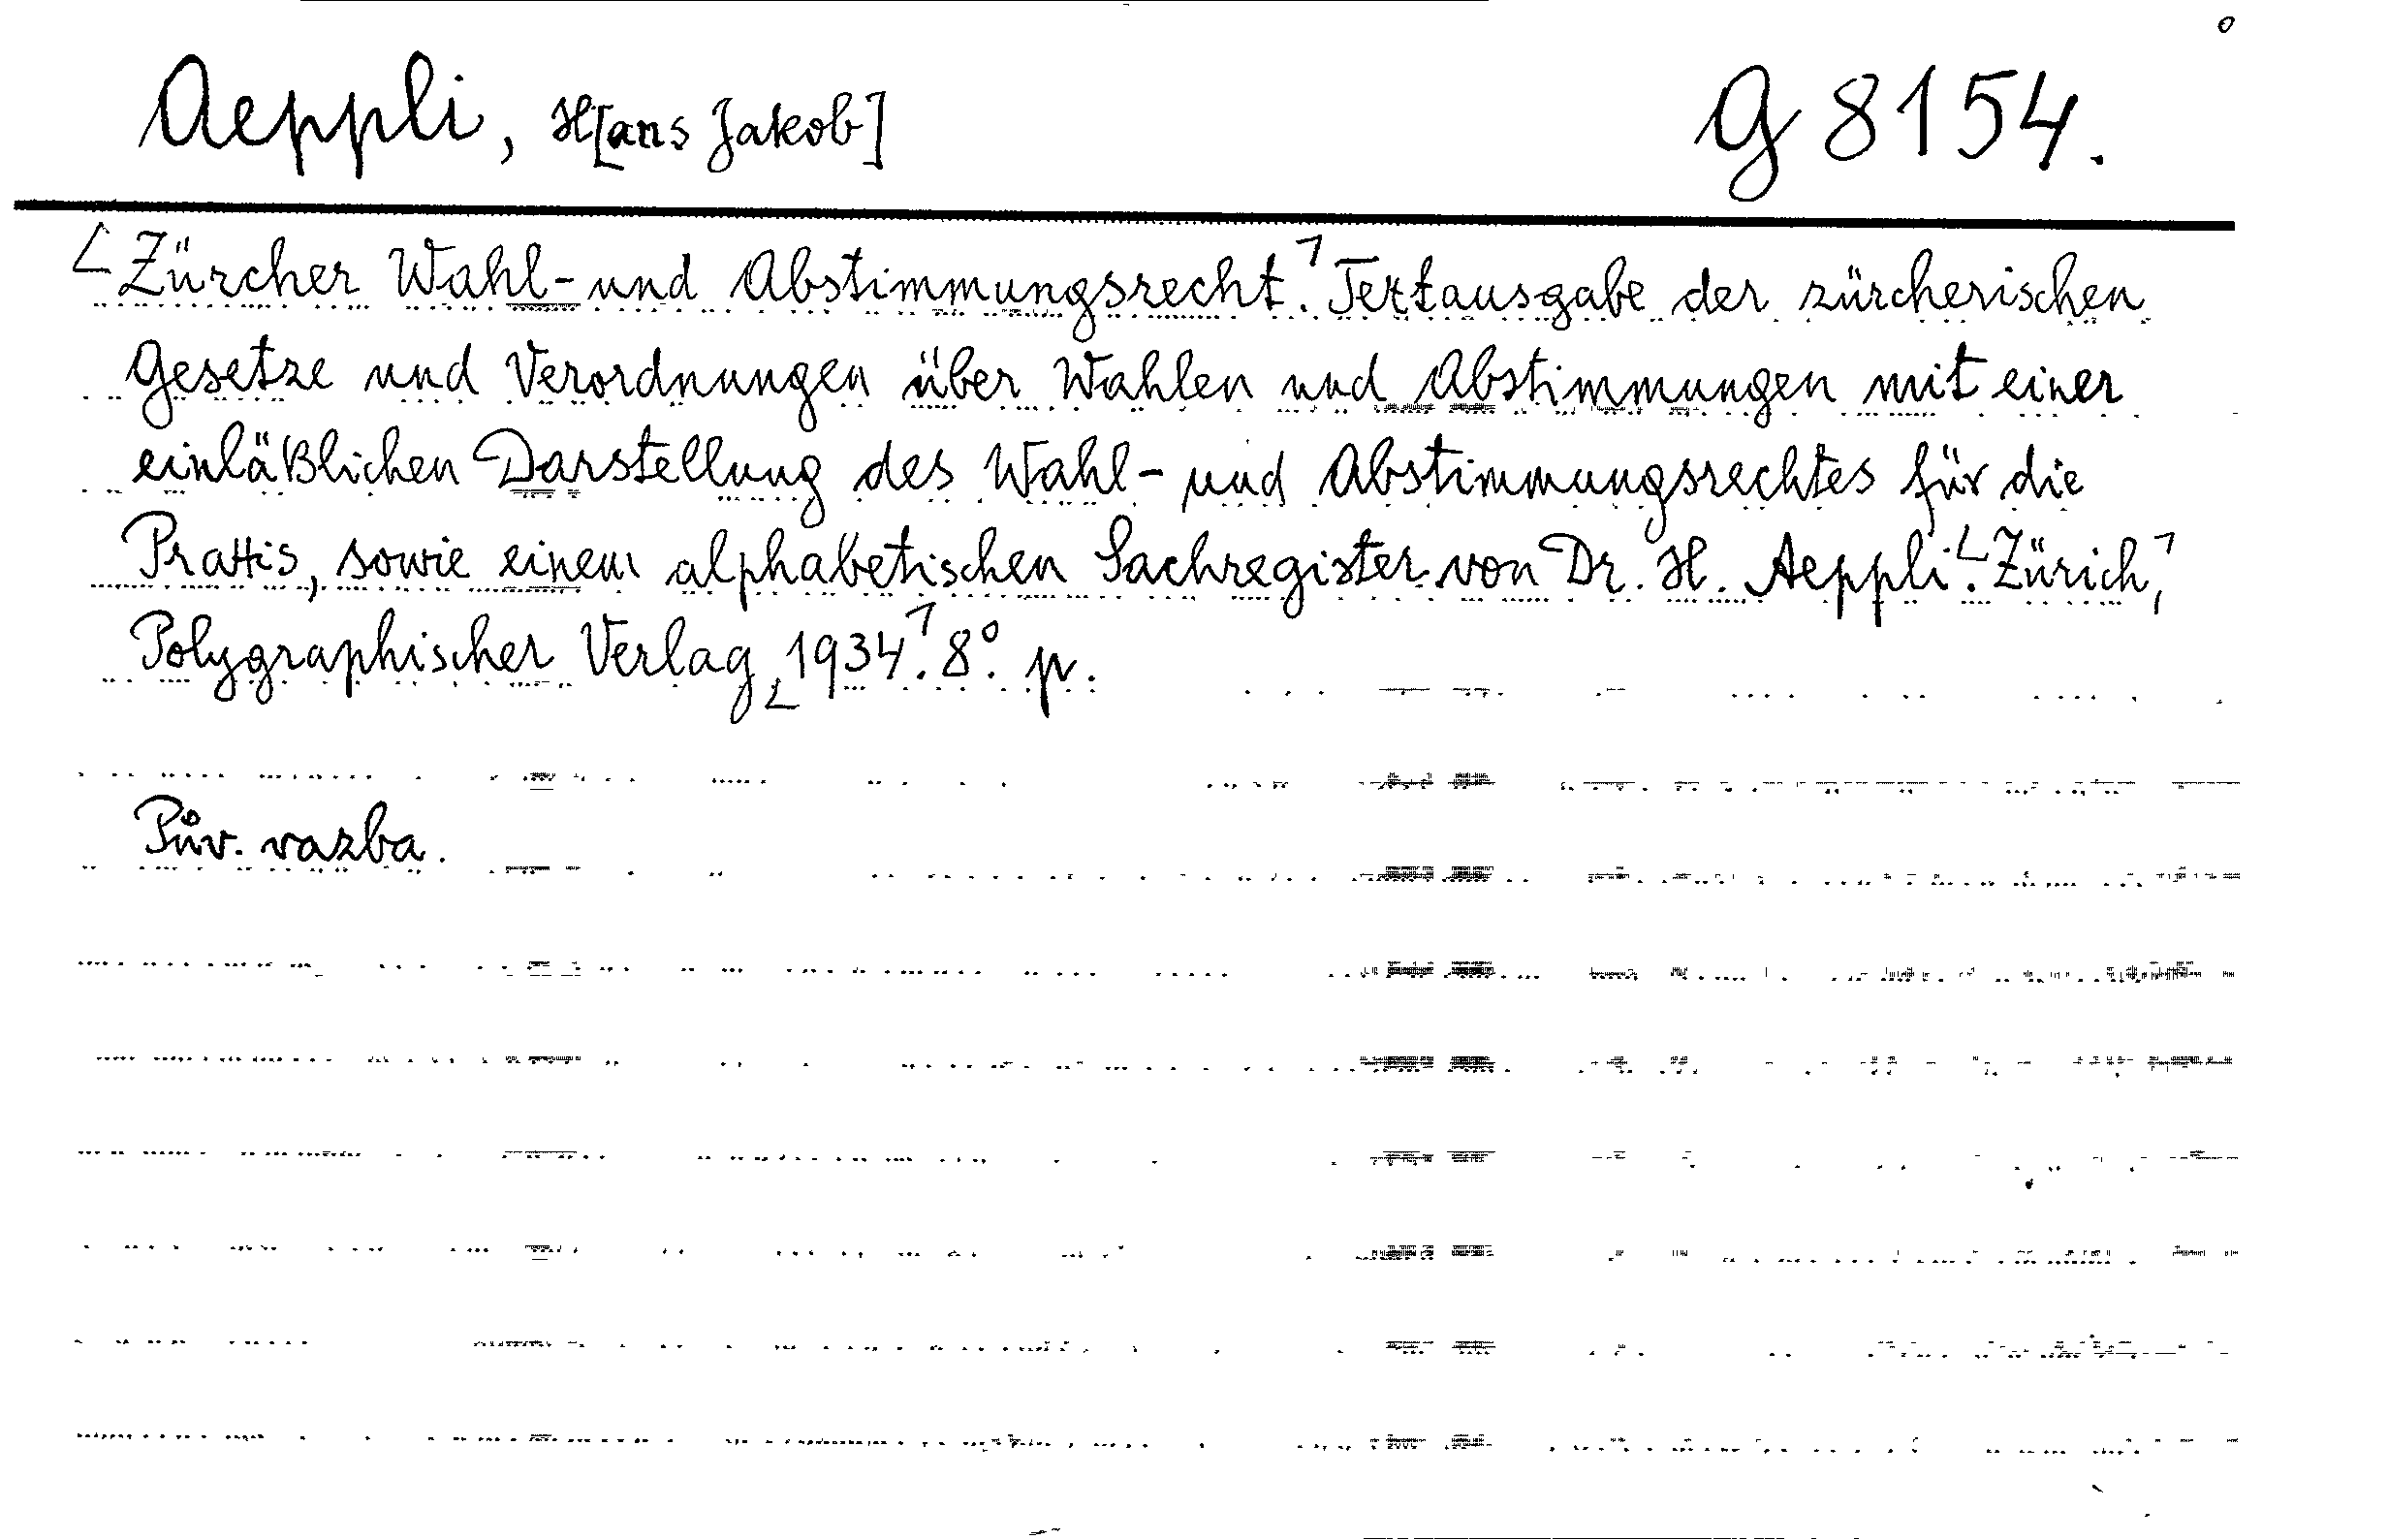 Aeppli, H[ans Jakob]
G 8154.
Zürcher Wahl- und Abstimmungsrecht. Textausgabe der zürcherischen
Gesetze und Verordnungen über Wahlen und Abstimmungen mit einer
einläßlichen Darstellung des Wahl- und Abstimmungsrechtes für die
Praxis, sowie einem alphabetischen Sachregister von Dr. H. Aeppli. Zürich,
Polygraphischer Verlag, 1934. 8°. p.
Pův. vazba.